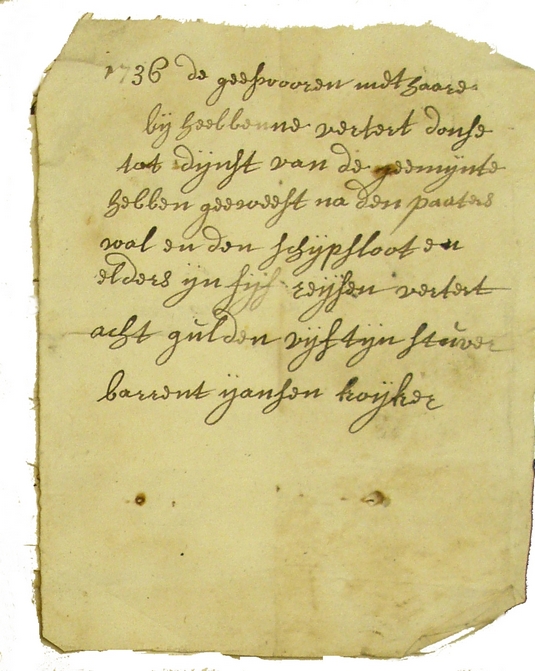 1736 de geeswooren met haare
bij heebbenne vertert donse
tot dijnst van de geemijnte
hebben geeweest na den paaters
wal en den schijpsloot en
elders ijn sijs reijsen vertert
acht gulden vijftijn stuver
barrent ijansen koijker